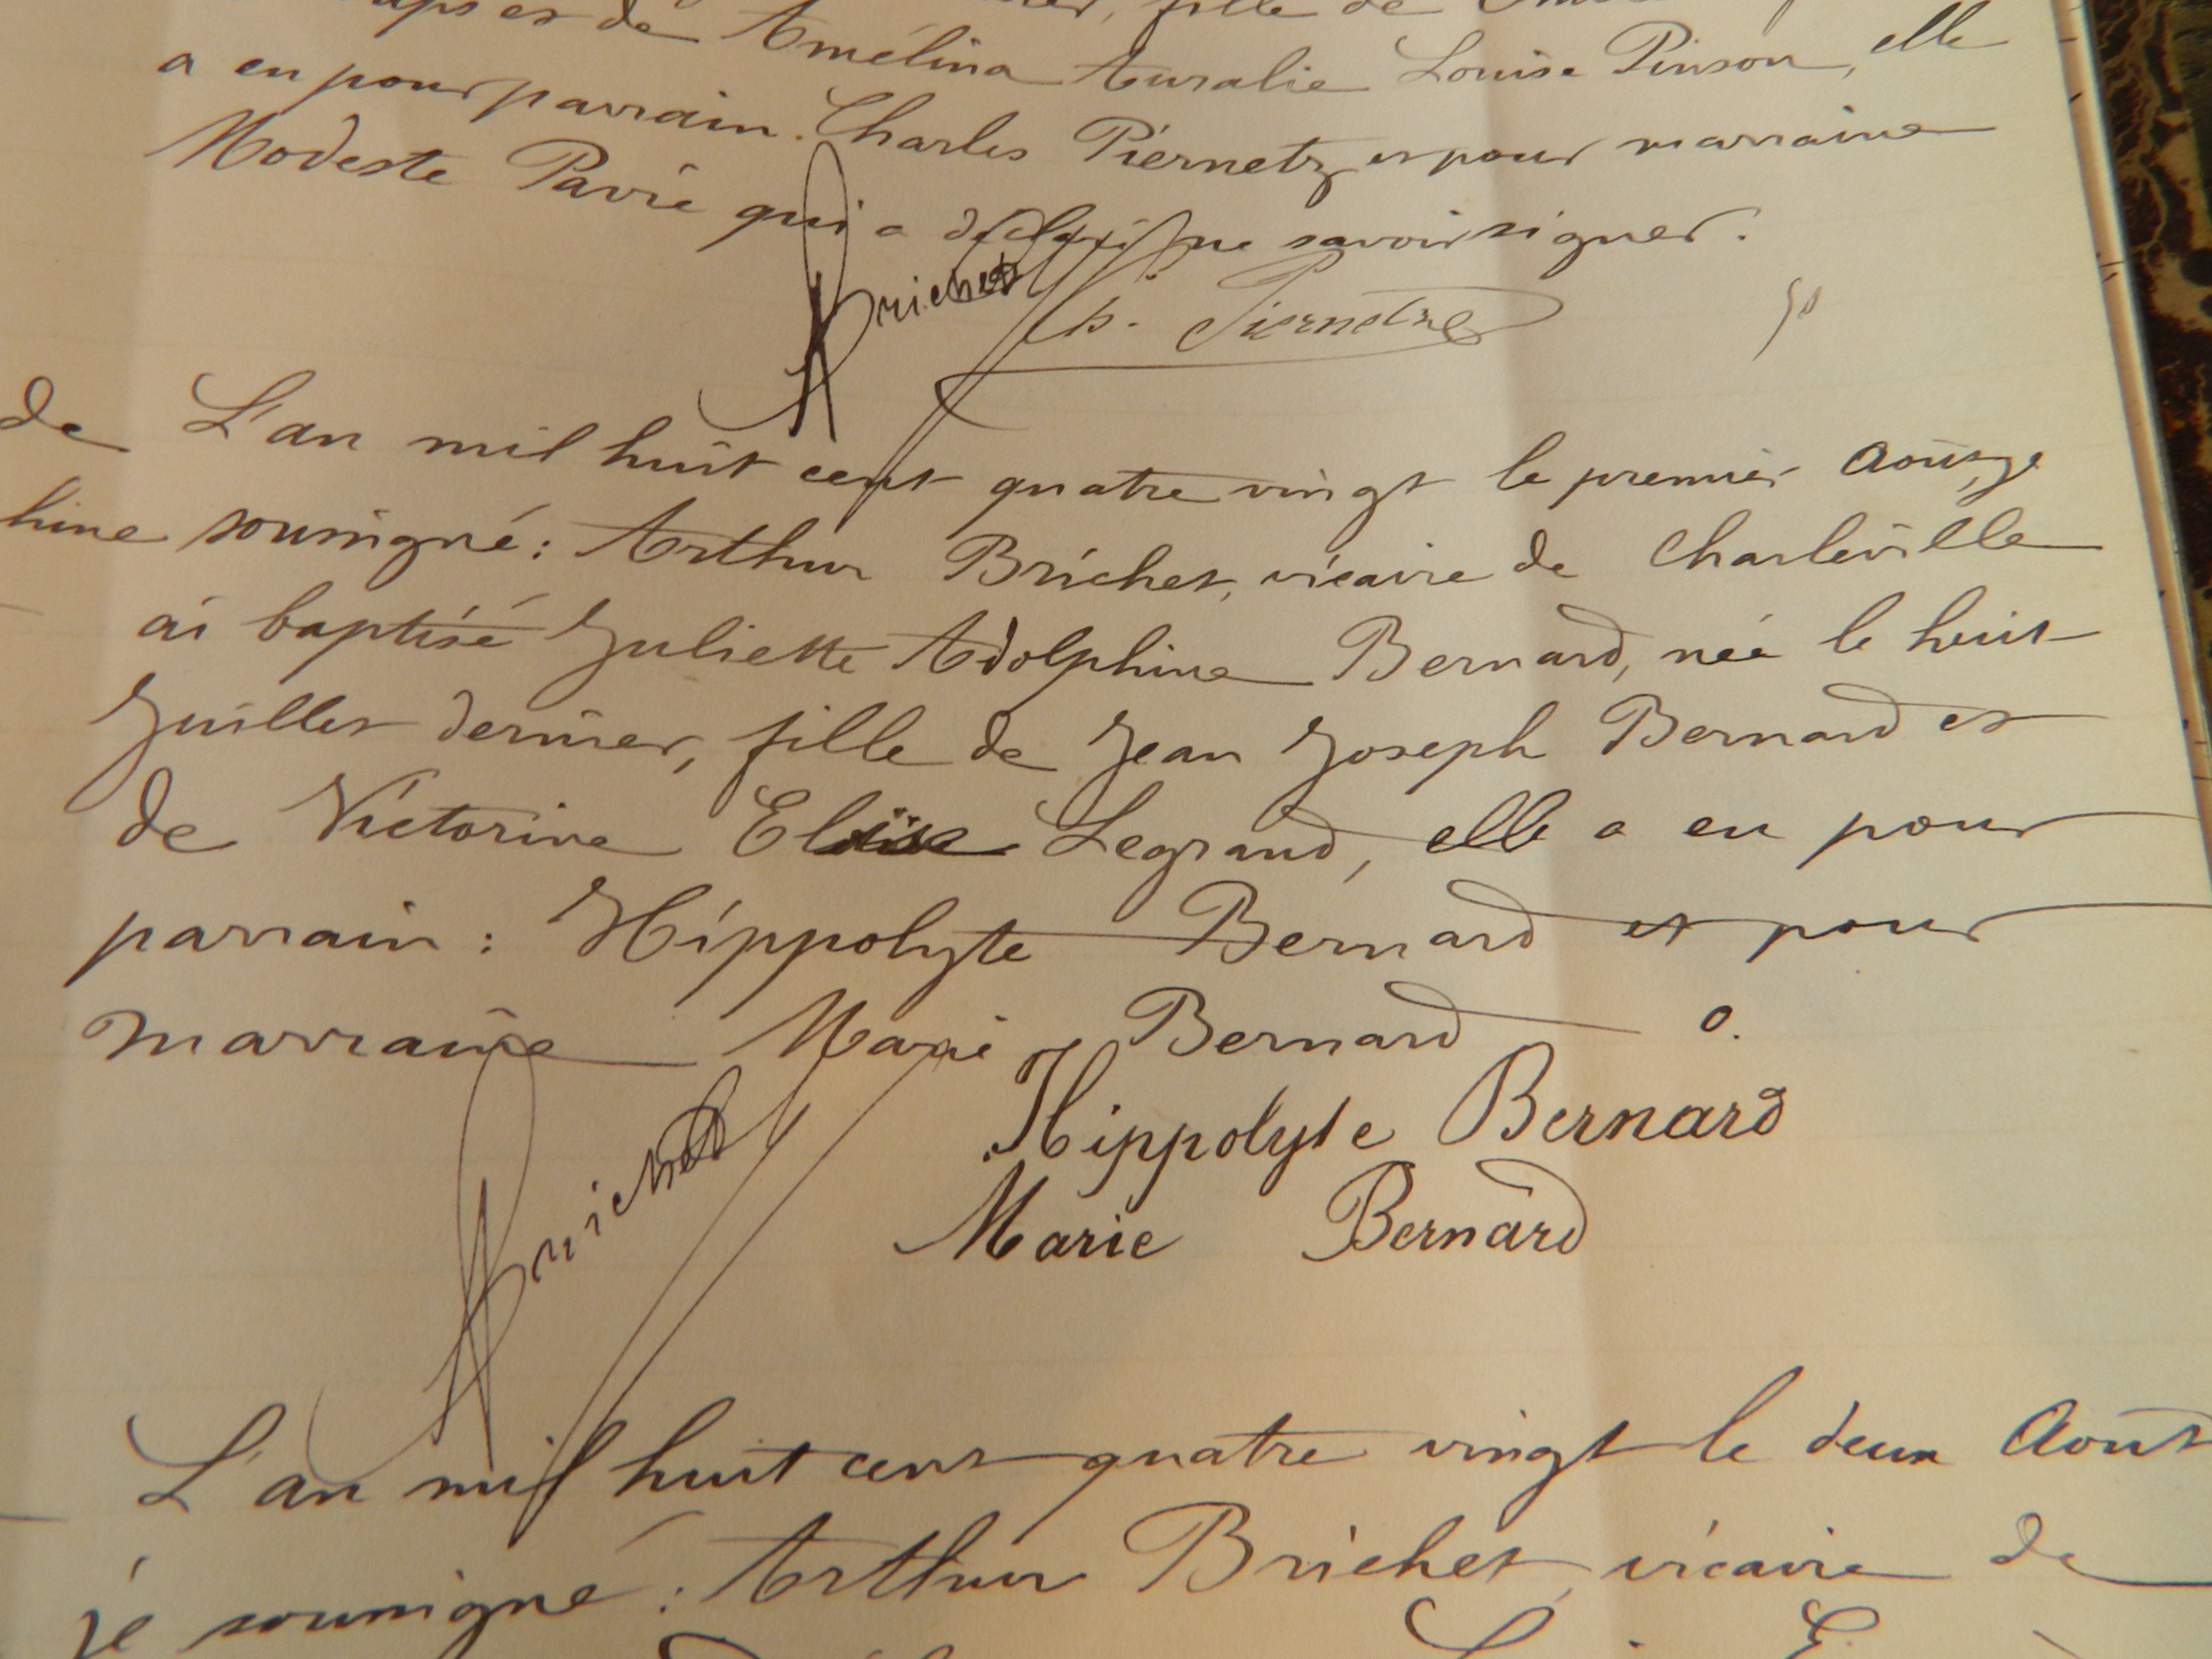 de Amélina Auralie Louise Pinson, elle
a eu pour parrain. Charles Piernetz et pour marraine
Modeste Pavie qui a déclaré ne savoir signer.
ABrichet Ch. Piernetz
de L'an mil huit cent quatre vingt le premier Août, je
hine soussigné: Arthur Brichet, vicaire de Charleville
ai baptisé Juliette Adolphine Bernard, née le huit
Juillet dernier, fille de Jean Joseph Bernard et
de Victorine Eloïse Legrand, elle a eu pour
parrain: Hippolyte Bernard et pour
marraine Marie Bernard
Hippolyte Bernard
ABrichet
Marie Bernard
L'an mil huit cent quatre vingt le deux Août
je soussigné: Arthur Brichet, vicaire de